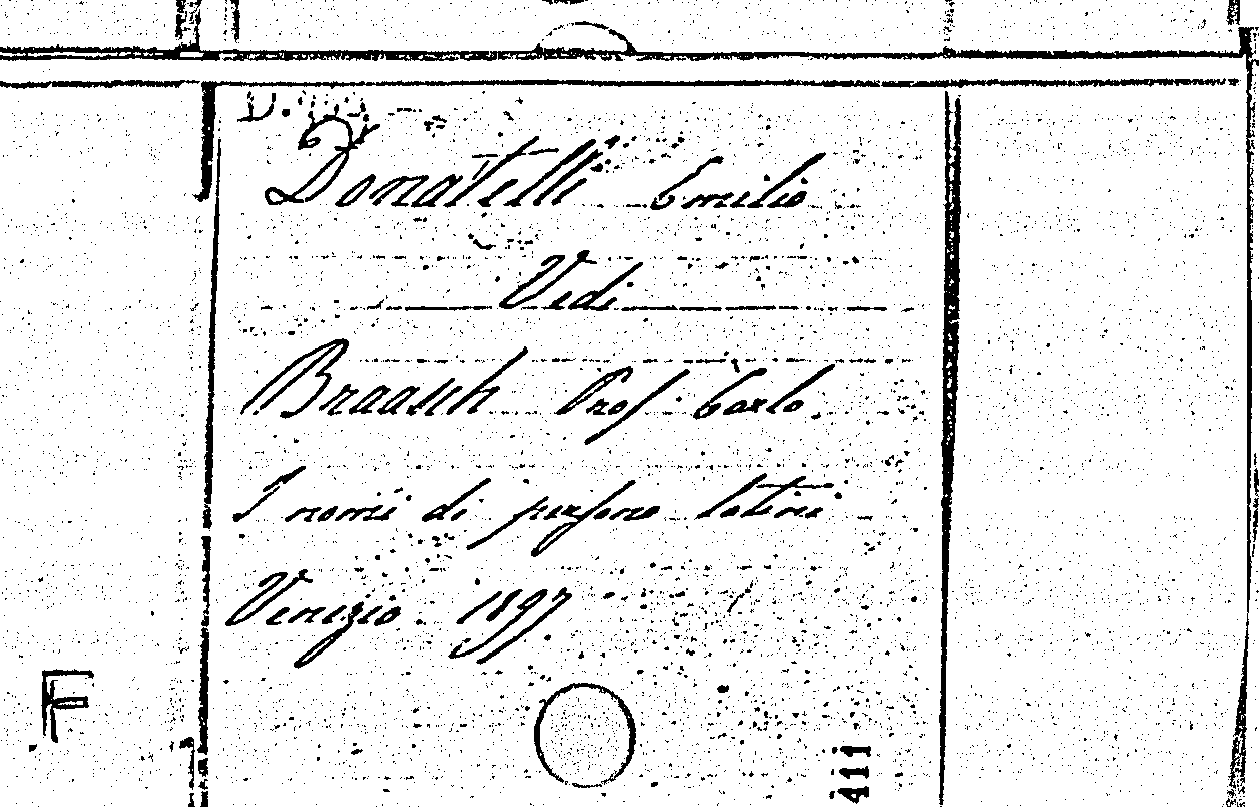 Donatelli Emilio
Vedi
Braasch Prof. Carlo.
I nomi di persona latini
Venezia. 1897
F
411